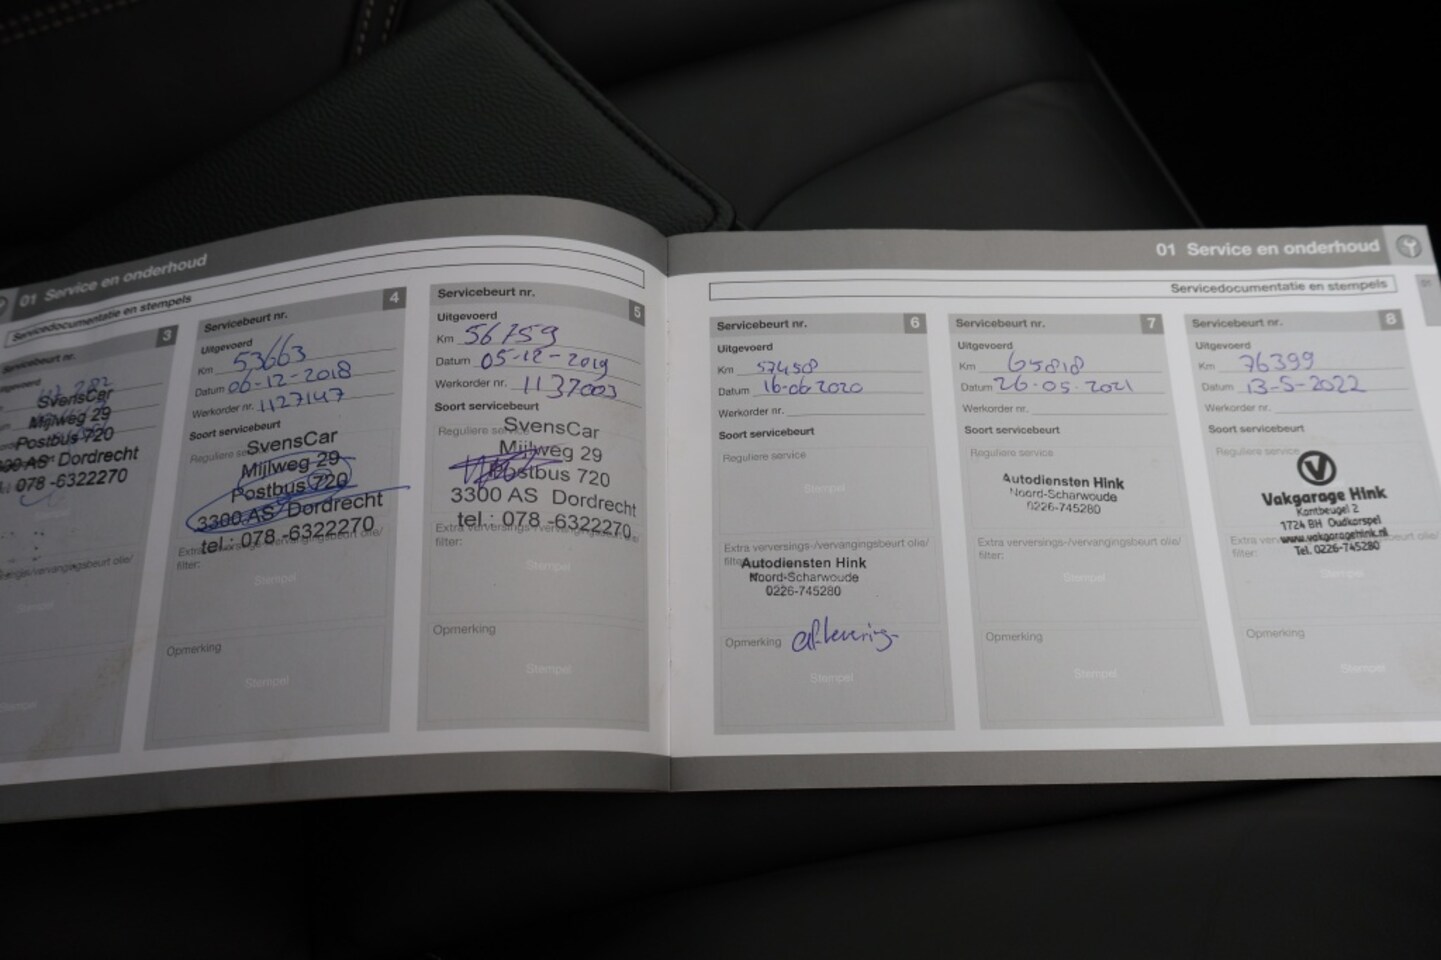 01 Service en onderhoud
Servicedocumentatie en stempels
Servicebeurt nr. 3
SvensCar
Mijlweg 29
Postbus 720
3300 AS Dordrecht
078 -6322270
Servicebeurt nr. 4
Uitgevoerd
Km 53663
Datum 06-12-2018
Werkorder nr. 1127147
Soort servicebeurt
SvensCar
Mijlweg 29
Postbus 720
3300 AS Dordrecht
tel : 078 -6322270
Extra verversings-/vervangingsbeurt olie/
filter:
Stempel
Opmerking
Stempel
Servicebeurt nr. 5
Uitgevoerd
Km 56759
Datum 05-12-2019
Werkorder nr. 1137003
Soort servicebeurt
Reguliere
SvensCar
Mijlweg 29
Postbus 720
3300 AS Dordrecht
tel : 078 -6322270
Extra verversings-/vervangingsbeurt olie/
filter:
Stempel
Opmerking
Stempel
01 Service en onderhoud
Servicedocumentatie en stempels
Servicebeurt nr. 6
Uitgevoerd
Km
Datum 16-06-2020
Werkorder nr.
Soort servicebeurt
Reguliere service
Stempel
Extra verversings-/vervangingsbeurt olie/
filter:
Autodiensten Hink
Noord-Scharwoude
0226-745280
Opmerking aflevering
Stempel
Servicebeurt nr. 7
Uitgevoerd
Km 65818
Datum 26-05-2021
Werkorder nr.
Soort servicebeurt
Reguliere service
Autodiensten Hink
Noord-Scharwoude
0226-745280
Extra verversings-/vervangingsbeurt olie/
filter:
Stempel
Opmerking
Stempel
Servicebeurt nr. 8
Uitgevoerd
Km 76399
Datum 13-5-2022
Werkorder nr.
Soort servicebeurt
Reguliere service
V
Vakgarage Hink
Kantbeugel 2
1724 BH Oudkarspel
www.vakgaragehink.nl
Tel. 0226-745280
Extra verversings-/vervangingsbeurt olie/
filter:
Stempel
Opmerking
Stempel